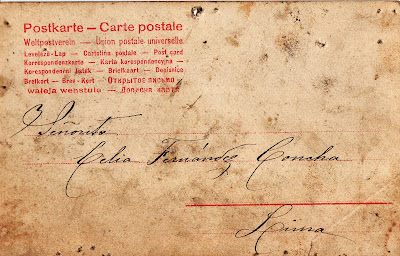 Postkarte — Carte postale
Weltpostverein — Union postale universelle
Levelező-Lap — Cartolina postale — Post card
Korrespondenzkarte — Karta korespondencyjna —
Korespondenční lístek — Briefkaart — Dopisnice
Brefkort — Brev-Kort — Открытое письмо
waleja wehstule — Дописна карта
Señorita
Celia Fernández Concha
Lima